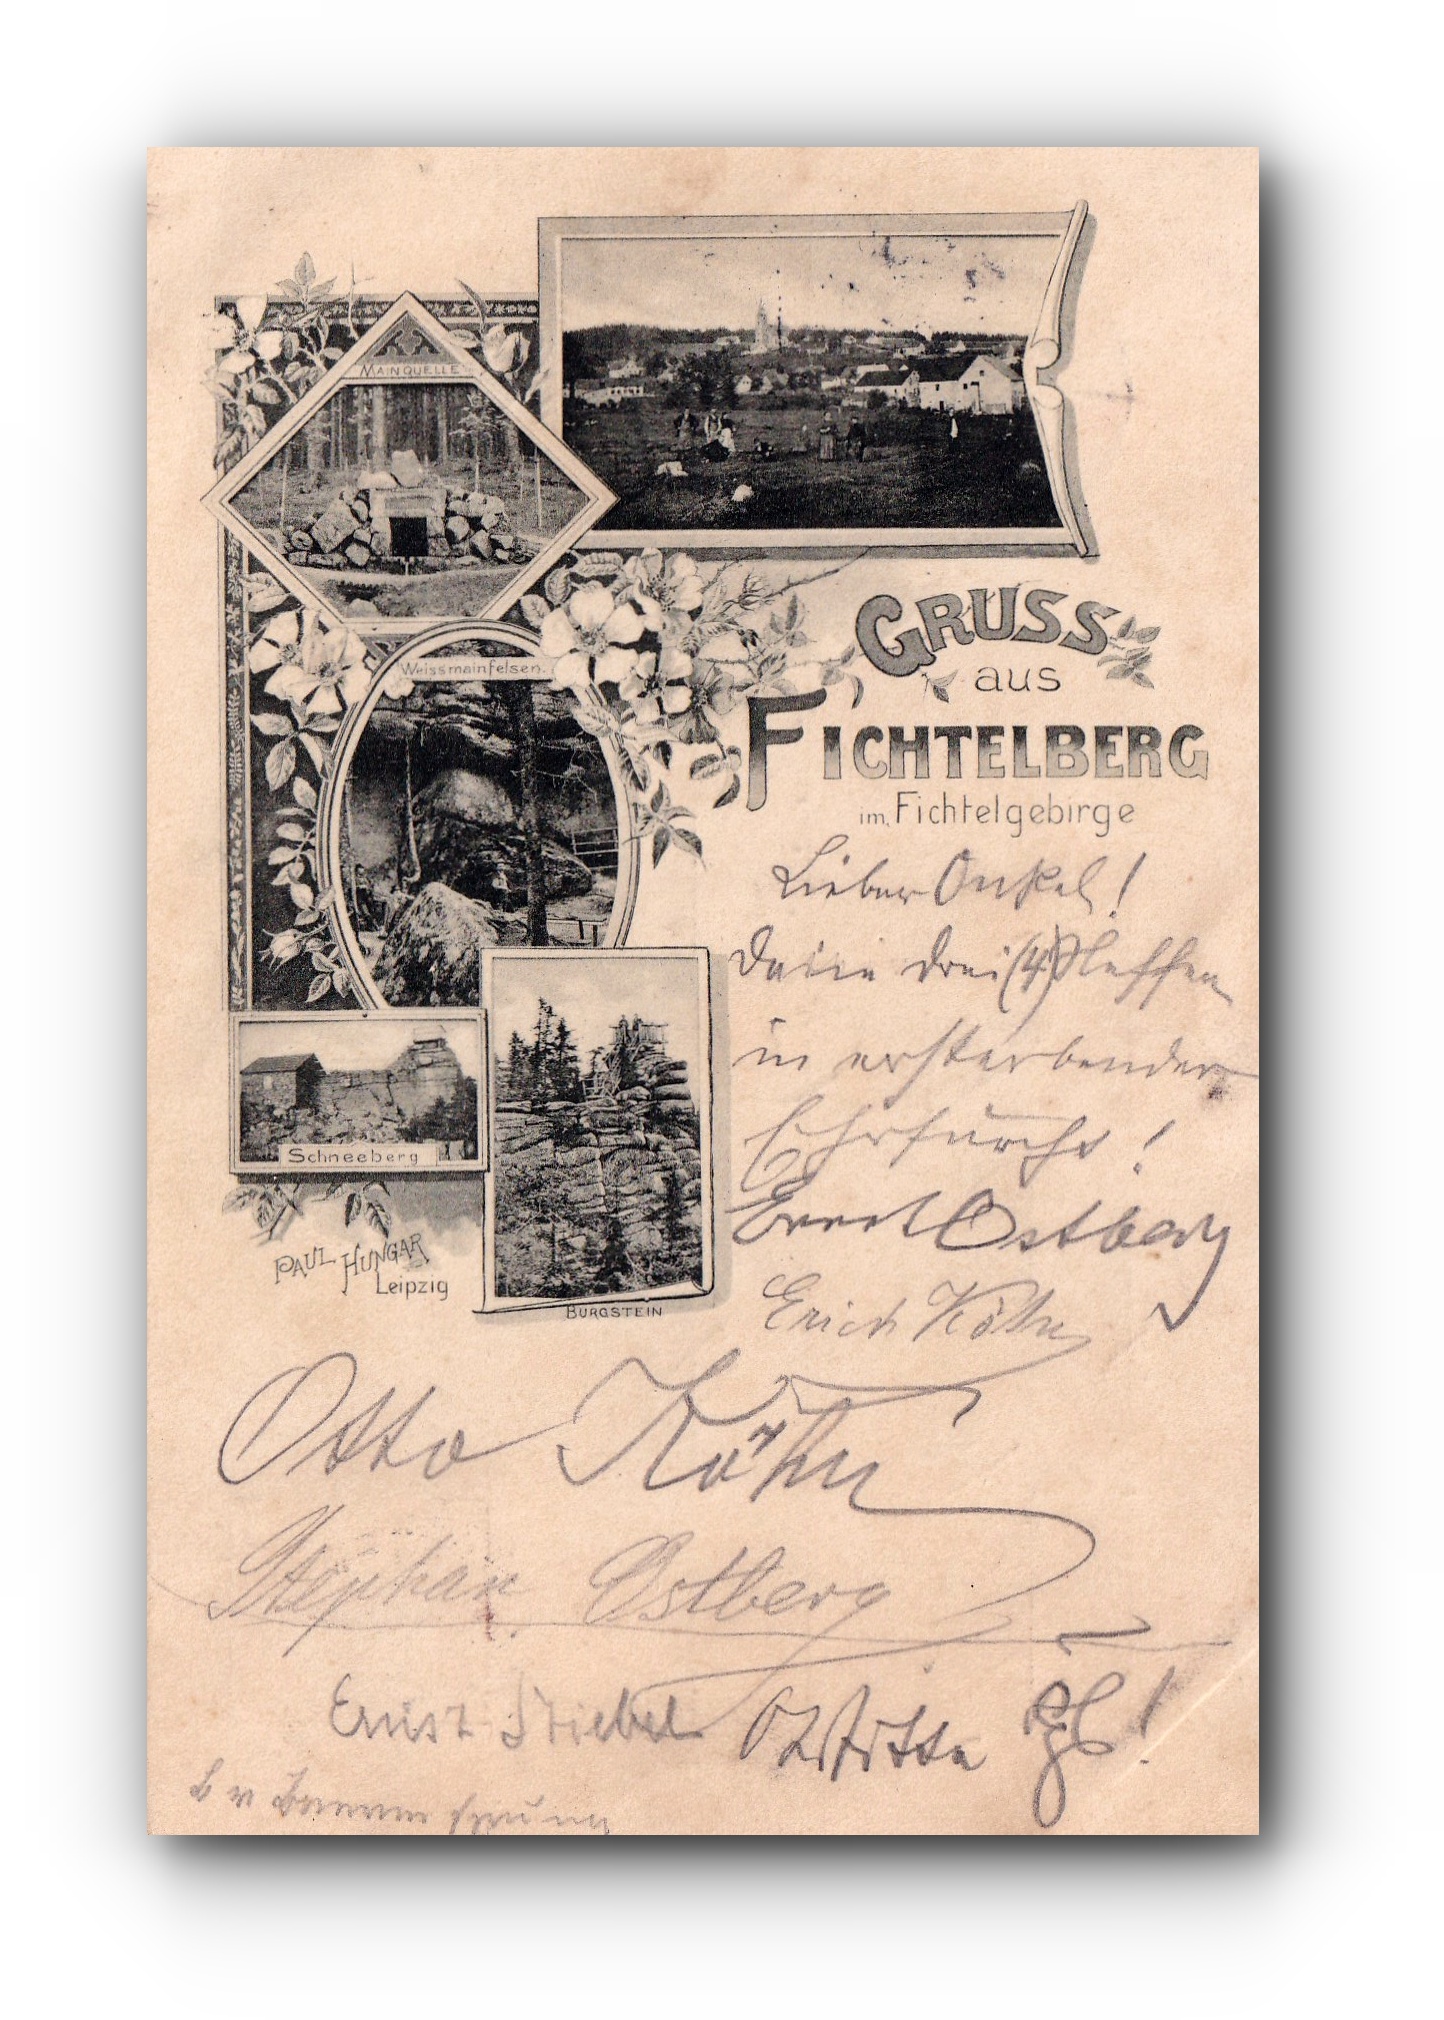 MAINQUELLE
Weissmainfelsen.
Schneeberg
BURGSTEIN
PAUL HUNGAR
Leipzig
GRUSS
aus
FICHTELBERG
im Fichtelgebirge
Lieber Onkel!
Deine drei (4) Neffen
in ersterbender
Ehrfurcht!
Ernst Ostberg
Erich Köhn
Otto Köhn
Stephan Ostberg
Ernst Stiebel